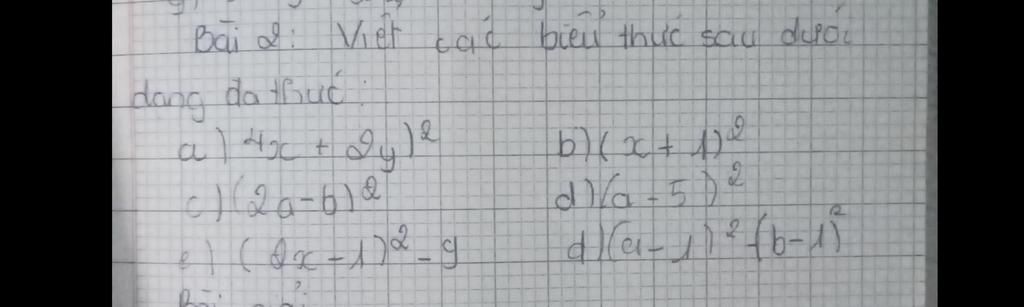 Bài 2: Viết các biểu thức sau dưới
dạng đa thức:
a) 4x + 2y)² b) (x + 1)²
c) (2a-b)² d) (a - 5)²
e) (2x-1)² - 9 d) (a-1)² - (b-1)²